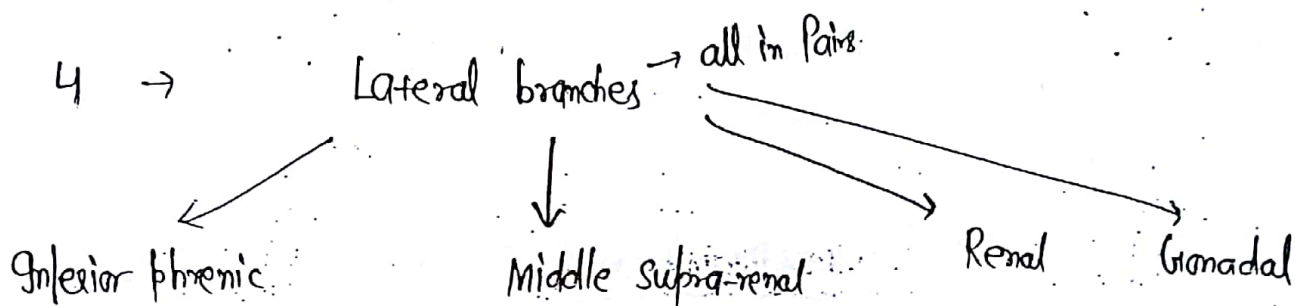 4 → Lateral branches → all in Pairs.
Inferior phrenic Middle Supra-renal Renal Gonadal